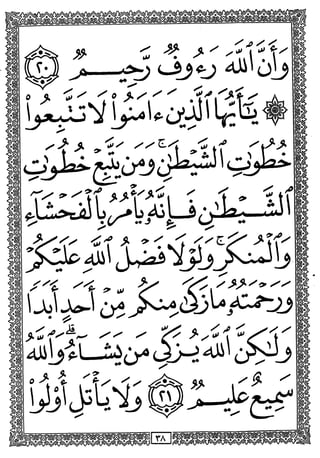 وَأَنَّ ٱللَّهَ رَءُوفٌ رَّحِيمٌ ٢٠
۞ يَٰٓأَيُّهَا ٱلَّذِينَ ءَامَنُوا۟ لَا تَتَّبِعُوا۟
خُطُوَٰتِ ٱلشَّيْطَٰنِ ۚ وَمَن يَتَّبِعْ خُطُوَٰتِ
ٱلشَّيْطَٰنِ فَإِنَّهُۥ يَأْمُرُ بِٱلْفَحْشَآءِ
وَٱلْمُنكَرِ ۚ وَلَوْلَا فَضْلُ ٱللَّهِ عَلَيْكُمْ
وَرَحْمَتُهُۥ مَا زَكَىٰ مِنكُم مِّنْ أَحَدٍ أَبَدًا
وَلَٰكِنَّ ٱللَّهَ يُزَكِّى مَن يَشَآءُ ۗ وَٱللَّهُ
سَمِيعٌ عَلِيمٌ ٢١ وَلَا يَأْتَلِ أُو۟لُوا۟
٣٨